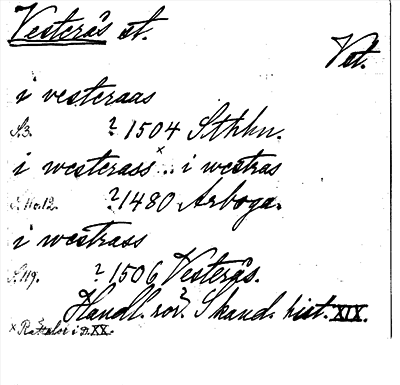 Vesterås st.
Vst.
i vesteraas
S.3. ? 1504 Sthlm.
i westerass x .. i westras
S. 11 o. 12. ? 1480 Arboga.
i westrass
S. 119. ? 1506 Vesterås.
Handl. rör. Skand. hist. XIX.
x Rättelse i d. XX.